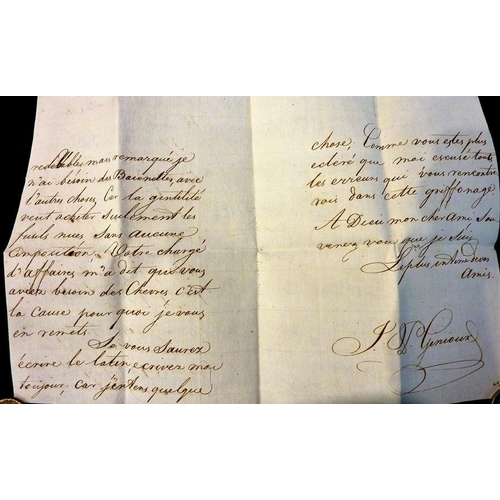 redevables mais remarqué je
n'ai besoin des Baionettes, avec
l'autres choses, Car la gentilité
veut acheter seulement les
fusils nues sans aucune
Votre chargé
d'affaires m'a dit que vous
avez besoin des Chevres c'est
la cause pour quoi je vous
en remets.
Si vous Saurez
écrire le latin, ecrivez moi
toujour, car j'entens quelque
chose, Comme vous estes plus
ecleré que moi escusé tout
les erreurs que vous rencontre
rois dans cette griffonage
A Dieu mon cher Ami Sou
venez vous que je suis
Le plus intime de vos
Amis.